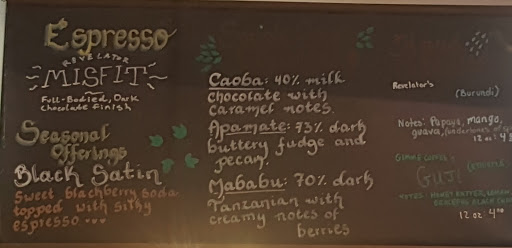 Espresso
REVELATOR
MISFIT
Full-Bodied, Dark
Chocolate Finish
Seasonal
Offerings
Black Satin
Sweet blackberry soda
topped with silky
espresso ...
Caoba: 40% milk
chocolate with
caramel notes.
Apamate: 73% dark
buttery fudge and
pecan.
Mababu: 70% dark
Tanzanian with
creamy notes of
berries
Revelator's
(Burundi)
Notes: Papaya, mango,
guava,
12 oz:
Guji
12 oz: 4